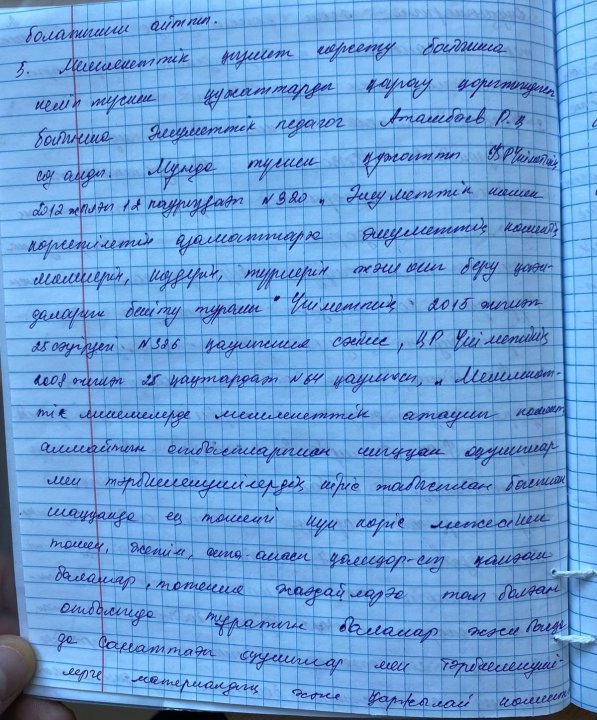 болатынын айтып.
5. Мемлекеттік қызмет көрсету бойынша
келіп түскен құжаттарды қарау қорытындысы
бойынша Әлеуметтік педагог Атамбаев Р. қ
сөз алды. Мұнда түскен құжатты ҚР Үкіметінің
2012 жылғы 12 наурыздағы №320 „ Әлеуметтік көмек
көрсетілетін азаматтарға әлеуметтік көмектің
мөлшерін, көздерін, түрлерін және оны беру қағи-
даларын бекіту туралы " Үкіметтің 2015 жылғы
25 сәуірдегі №326 қаулысына сәйкес, ҚР Үкіметінің
2008 жылғы 25 қаңтардағы №64 қаулысы, „ Мемлекет-
тік мекемелерде мемлекеттік атаулы көмек
алмайтын отбасыларынан шыққан оқушылар
мен тәрбиеленушілердің кіріс табысынан бастап
шаққанда ең төменгі күн көріс межесінен
төмен, жетім, ата-анасы қамқор-сыз қалған
балалар, төтенше жағдайларға тап болған
отбасында тұратын балалар және басқа
да санаттағы оқушылар мен тәрбиеленуші-
лерге материалдық және қаржылай көмек